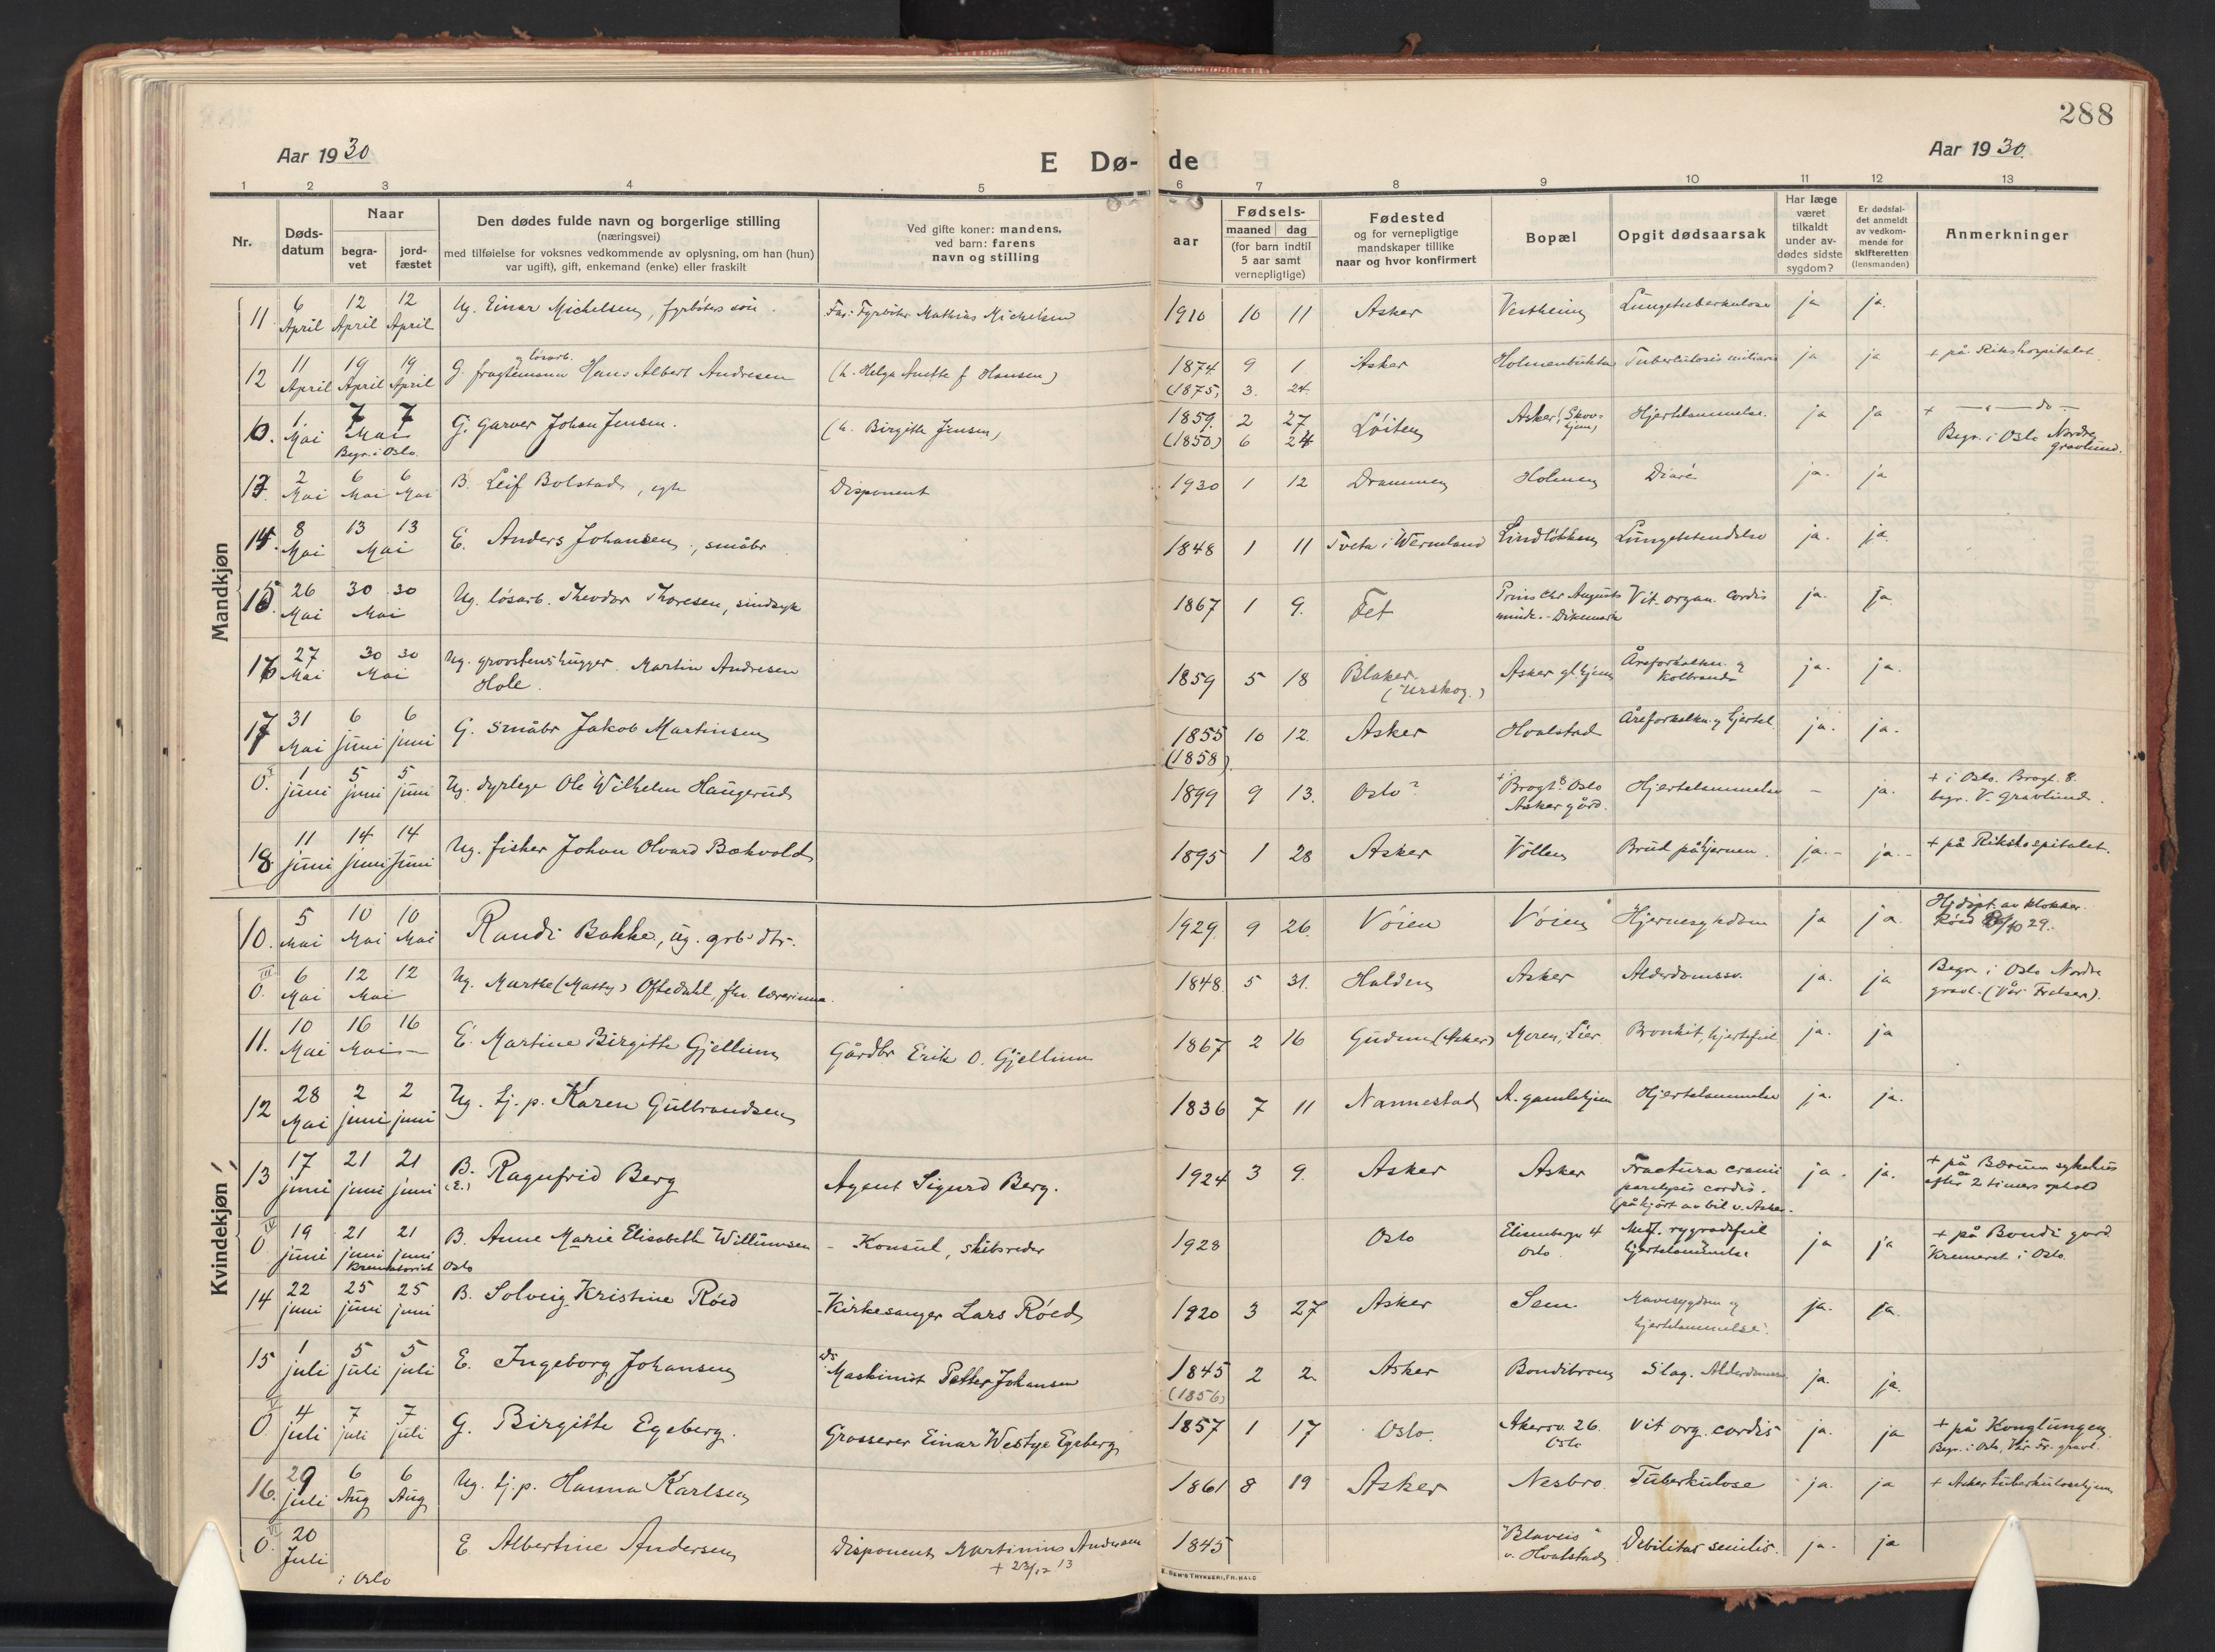 288
Aar 1930
E Dø-
de
Aar 1930.
1 2 3 4 5 6 7 8 9 10 11 12 13
Nr.
Døds-
datum
Naar
begra-
vet
jord-
fæstet
Den dødes fulde navn og borgerlige stilling
(næringsvei)
med tilføielse for voksnes vedkommende av oplysning, om han (hun)
var ugift), gift, enkemand (enke) eller fraskilt
Ved gifte koner: mandens,
ved barn: farens
navn og stilling
aar
Fødsels-
maaned dag
(for barn indtil
5 aar samt
vernepligtige)
Fødested
og for vernepligtige
mandskaper tillike
naar og hvor konfirmert
Bopæl
Opgit dødsaarsak
Har læge
været
tilkaldt
under av-
dødes sidste
sygdom?
Er dødsfal-
det anmeldt
av vedkom-
mende for
skifteretten
(lensmanden)
Anmerkninger
Mandkjøn
11. 6 April 12 April 12 April Ug. Einar Michelsen, fyrbøters søn. Far: Fyrbøter Mathias Michelsen 1910 10 11 Asker Vestheim Lungetuberkulose ja ja.
12 11 April 19 April 19 April G. fragtemann og løsarb. Hans Albert Andresen (h. Helga Anette f. Hansen) 1874 9 1 Asker Holmenbukta Tuberculosis miliaris ja ja + på Rikshospitalet
(1875, 3. 24.
0. 1. Mai 7 Mai 7 G. Garver Johan Jensen. (h. Birgitte Jensen) 1859. 2 27 Løiten Asker (Skov-
hjem) Hjertelammelse. ja ja + — " — do —
Begr. i Oslo
(1850) 6 24
Begr. i Oslo Nordre
gravlund.
13. 2 Mai 6 Mai 6 Mai B. Leif Bolstad, egte Disponent 1930 1 12 Drammen Holmen Diaré ja. ja
14. 8 Mai 13 13 Mai E. Anders Johansen, småbr 1848 1 11 Tveta i Wermland Lindløkken Lungebetendelse ja. ja
15 26 Mai 30 30 Mai Ug. løsarb. Theodor Thoresen, sindsyk 1867 1 9. Fet Prins Chr Augusts
minde. - Dikemark Vit. organ. cordis ja. ja.
16 27 Mai 30 30 Mai Ug. grovstenshugger Martin Andresen
Hole. 1859 5 18 Blaker
(Urskog.) Asker gl.hjem Åreforkalkn. og
Kolbrand ja. ja.
17 31 Mai 6 juni 6 juni G. småbr Jakob Martinsen 1855 10 12. Asker Hvalstad Åreforkalkn. og hjertel. ja. ja.
(1858)
0. 1 juni 5 juni 5 juni Ug. dyrlege Ole Wilhelm Haugerud 1899 9 13. Oslo? + Brogt. 8 Oslo
Asker gård. Hjertelammelse - ja. + i Oslo. Brogt. 8.
begr. V. Gravlund.
18. 11 juni 14 juni 14 juni Ug. fisker Johan Olvard Bækvold 1895 1 28 Asker Vollen Brud på hjernen. ja.- ja.- + på Rikshospitalet.
Kvindekjøn
10. 5 Mai 10 Mai 10 Mai Randi Bakke, ug. grb. dtr. 1929. 9 26. Vøien Vøien Hjernesykdom ja ja. Hjdøpt. av klokker
Røed /10 29.
0. III 6 Mai 12 12 Mai Ug. Marthe (Matty) Oftedahl, fhv. lærerinne. 1848. 5 31. Halden Asker Alderdomssv. ja. ja Begr i Oslo Nordre
gravl. (Vår Frelsers).
11. 10 Mai 16 Mai 16 — E. Martine Birgitte Gjellum Gårdbr Erik O. Gjellum 1867 2 16 Gudum (Asker) Moren, Lier Bronkit, hjertefeil ja. ja
12 28 Mai 2 juni 2 juni Ug. tj.p. Karen Gulbrandsen 1836 7 11 Nannestad A. gamlehjem Hjertelammelse ja. ja.
13 17 juni 21 juni 21 juni B.
(E.) Ragnfrid Berg Agent Sigurd Berg. 1924 3 9. Asker Asker Fractura cranii
paralysis cordis.
(påkjørt av bil v. Asker. ja. ja. + på Bærum sykehus
efter ca 2 timers ophold
0 IV 19 juni 21 juni 21 juni B. Anne Marie Elisabeth Willumsen - Konsul, skibsreder 1928 Oslo Elisenbergv 4
Oslo Medf. rygradsfeil
hjertelammelse ja ja + på Bondi gård.
Kremeret i Oslo.
Krematoriet Oslo
14 22 juni 25 juni 25 juni B. Solveig Kristine Røed Kirkesanger Lars Røed 1920 3 27 Asker Sem. Mavesygdom og
hjertelammelse. ja. ja.
15 1 juli 5 juli 5 juli E. Ingeborg Johansen Maskinist Petter Johansen 1845 2 2 Asker Bondibroen Slag. Alderdomssv. ja. ja.
(1856)
0 V 4 juli 7 juli 7 juli G. Birgitte Egeberg. Grosserer Einar Westye Egeberg 1857 1 17 Oslo. Akersv. 26.
Oslo Vit org. cordis ja. ja + på Konglungen
Begr. i Oslo, Vår Fr. gravl.
16. 29 juli 6 Aug 6 Aug Ug. tj.p. Hanna Karlsen 1861 8 19 Asker Nesbro. Tuberkulose ja. ja + Asker tuberkulosehjem
0. VI 20 Juli E. Albertine Andersen Disponent Martinius Andersen
+ 23/12 13 1845 "Blaveis"
v. Hvalstad Debilitas senilis. ja. ja
i Oslo